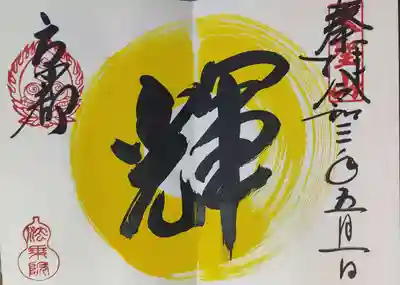 奉拝 令和三年五月一日
輝
京都
法乗院